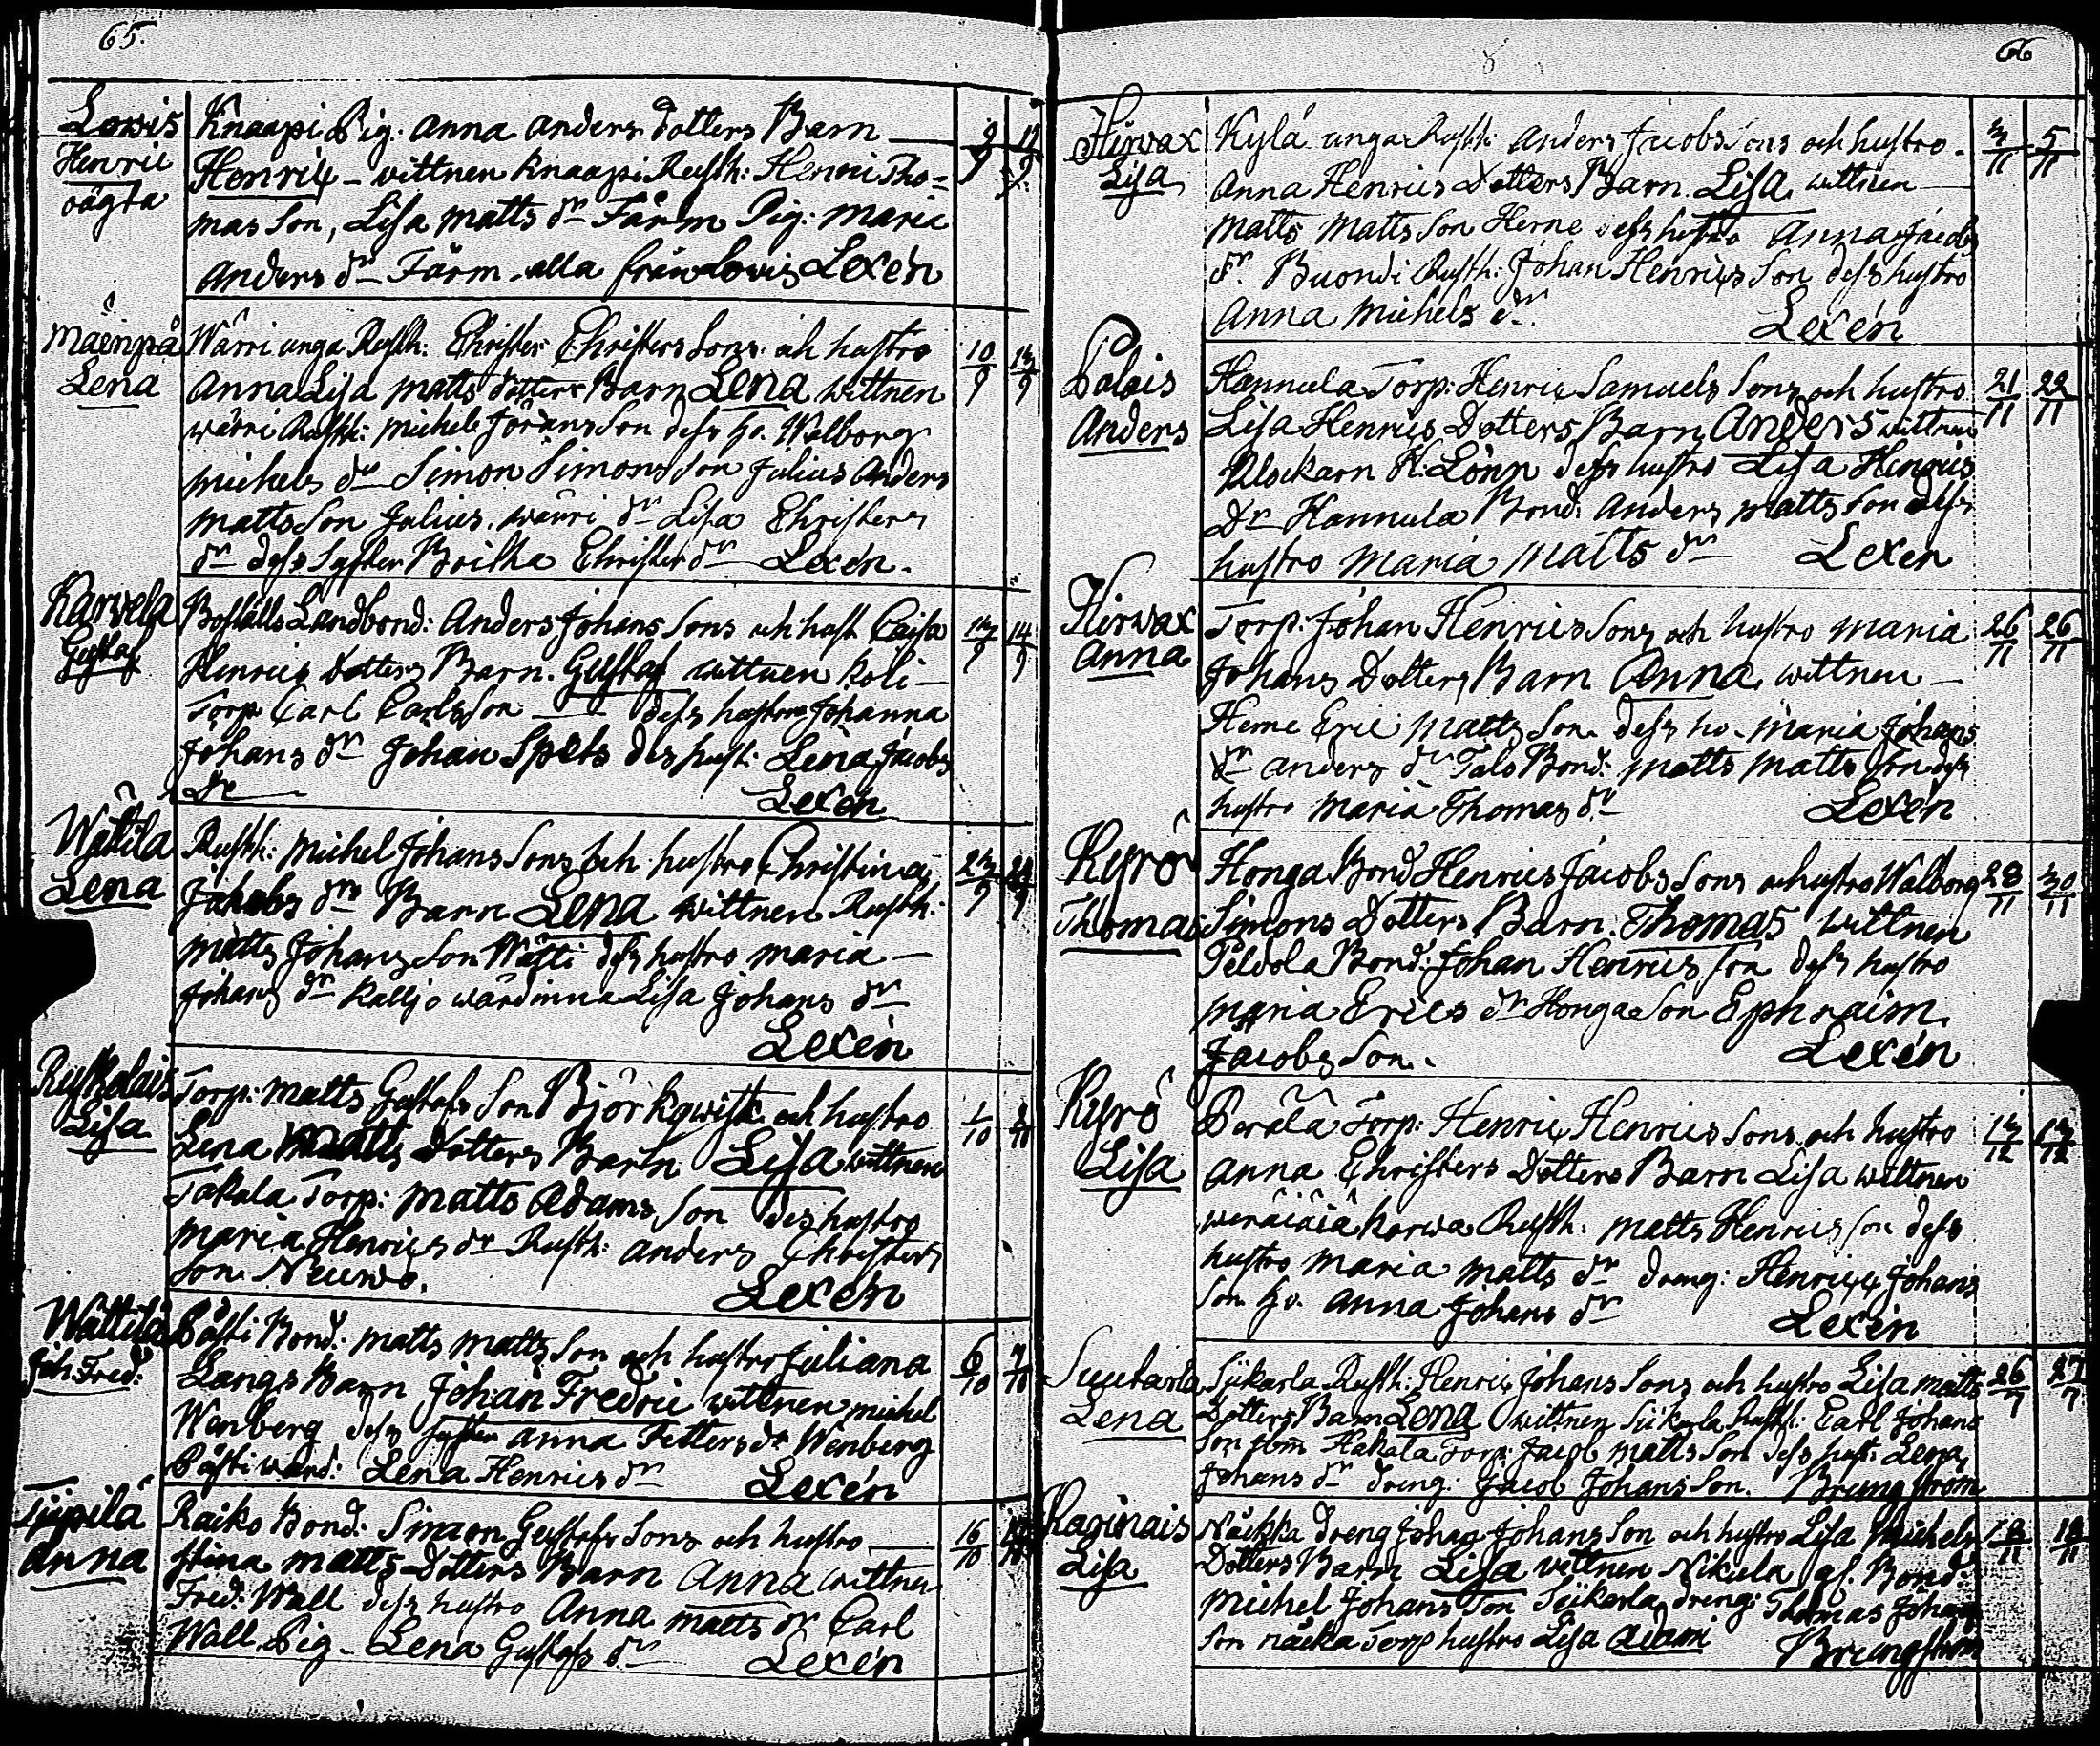 65.
Lowis
Henric
oägta
Knaapi Pig: Anna Anders Dotters Barn
Henric - wittnen Knaapi Rusth: Henric Tho=
mas Son, Lisa Matts dr Färm Pig: Maria
Anders dr Färm alla från Lowis Lexén
9/9 11/9
Mäenpä
Lena
Wärri unga Rusth: Christer Christers Sons och hustro
Anna Lisa Matts Dotters Barn Lena wittnen
Wärri Rusth: Michel Jörans Son dess ho. Walborg
Michels dr Simon Simons Son Julius Anders
Matts Son Julius. Wärri dr Lisa Christers
dr dess Syster Britha Christers dr Lexén.
10/9 13/9
Karwela
Gustaf
Boställs Landbond: Anders Johans Sons och hust Caisa
Henrics Dotters Barn. Gustaf wittnen Koli
Torp Carl Carls Son dess hustro Johanna
Johans dr Johan Spets des hust: Lena Jacobs
dr Lexén
13/9 14/9
Wättilä
Lena
Rusth: Michel Johans Sons och hustro Christina
Jakobs drs Barn Lena wittnen Rusth:
Matts Johans Son Wätti dess hustro Maria
Johans dr Kalljo wärdinna Lisa Johans dr
Lexén
23/9 24/9
Ruskolais
Lisa
Torp: Matts Gustafs Son Björkqwist och hustro
Lena Matts Dotters Barn Lisa wittnen
Takala Torp: Matts Adams Son des hustro
Maria Henrics dr Rusth: Anders Christers
Son Neuwo. Lexén
1/10 2/10
Wättilä
Joh: Fred:
Pästi Bond: Matts Matts Son och hustro Juliana
Längs Barn Johan Fredric wittnen Michel
Wenberg dess syster Anna Petters dr Wenberg
Pästi wärd: Lena Henrics dr Lexén
6/10 7/10
Typilä
Anna
Raiko Bond: Simon Gustafs Sons och hustro
Stina Matts Dotters Barn Anna wittnen
Fred: Wall dess hustro Anna Matts dr Carl
Wall Pig - Lena Gustafs dr Lexén
16/10
66
Hirwax
Lisa
Kylä unga Rusth: Anders Jacobs Sons och hustro
Anna Henrics Dotters Barn Lisa wittnen
Matts Matts Son Herne dess hustro Anna Jacobs
dr. Buondi Rusth: Johan Henrics Son dess hustro
Anna Michels dr. Lexén
3/11 5/11
Palais
Anders
Hannula Torp: Henric Samuels Sons och hustro
Lisa Henrics Dotters Barn Anders wittnen
Klockarn H: Lönn dess hustro Lisa Henrics
Dr Hannula Bond: Anders Matts Son dess
hustro Maria Matts dr Lexén
21/11 22/11
Hirwax
Anna
Torp: Johan Henrics Sons och hustro Maria
Johans Dotters Barn Anna wittnen
Herne Eric Matts Son dess ho. Maria Johans
dr Anders dr Talo Bond: Matts Matts Son dess
hustro Maria Thomas dr Lexén
26/11 26/11
Kyrö
Thomas
Honga Bond Henrics Jacobs Sons och hustro Walborg
Simons Dotters Barn. Thomas wittnen
Peldola Bond: Johan Henrics Son dess hustro
Maria Erics dr Honga Son Ephraim
Jacobs Son. Lexén
28/11 30/11
Kyrö
Lisa
Perälä Torp: Henric Henrics Sons och hustro
Anna Christers Dotters Barn Lisa wittnen
Weräiäiä Korwa Rusth: Matts Henrics Son dess
hustro Maria Matts dr dreng: Henric Johans
Son ho. Anna Johans dr Lexén
13/12 13/12
Suutarla
Lena
Siikarla Rusth: Henric Johans Sons och hustro Lisa Matts
Dotters Barn Lena wittnen Siikarla Rusth: Carl Johans
Son Hakala Torp: Jacob Matts Son dess hust: Lena
Johans dr dreng: Jacob Johans Son. Brungström
26/7 27/7
Raginais
Lisa
Näckä dreng Johan Johans Son och hustro Lisa Michels
Dotters Barn Lisa wittnen Nikula gl. Bond:
Michel Johans Son Siikarla dreng: Thomas Johans
Son Näckä Torp hustro Lisa Adami Brungström
18/11 18/11